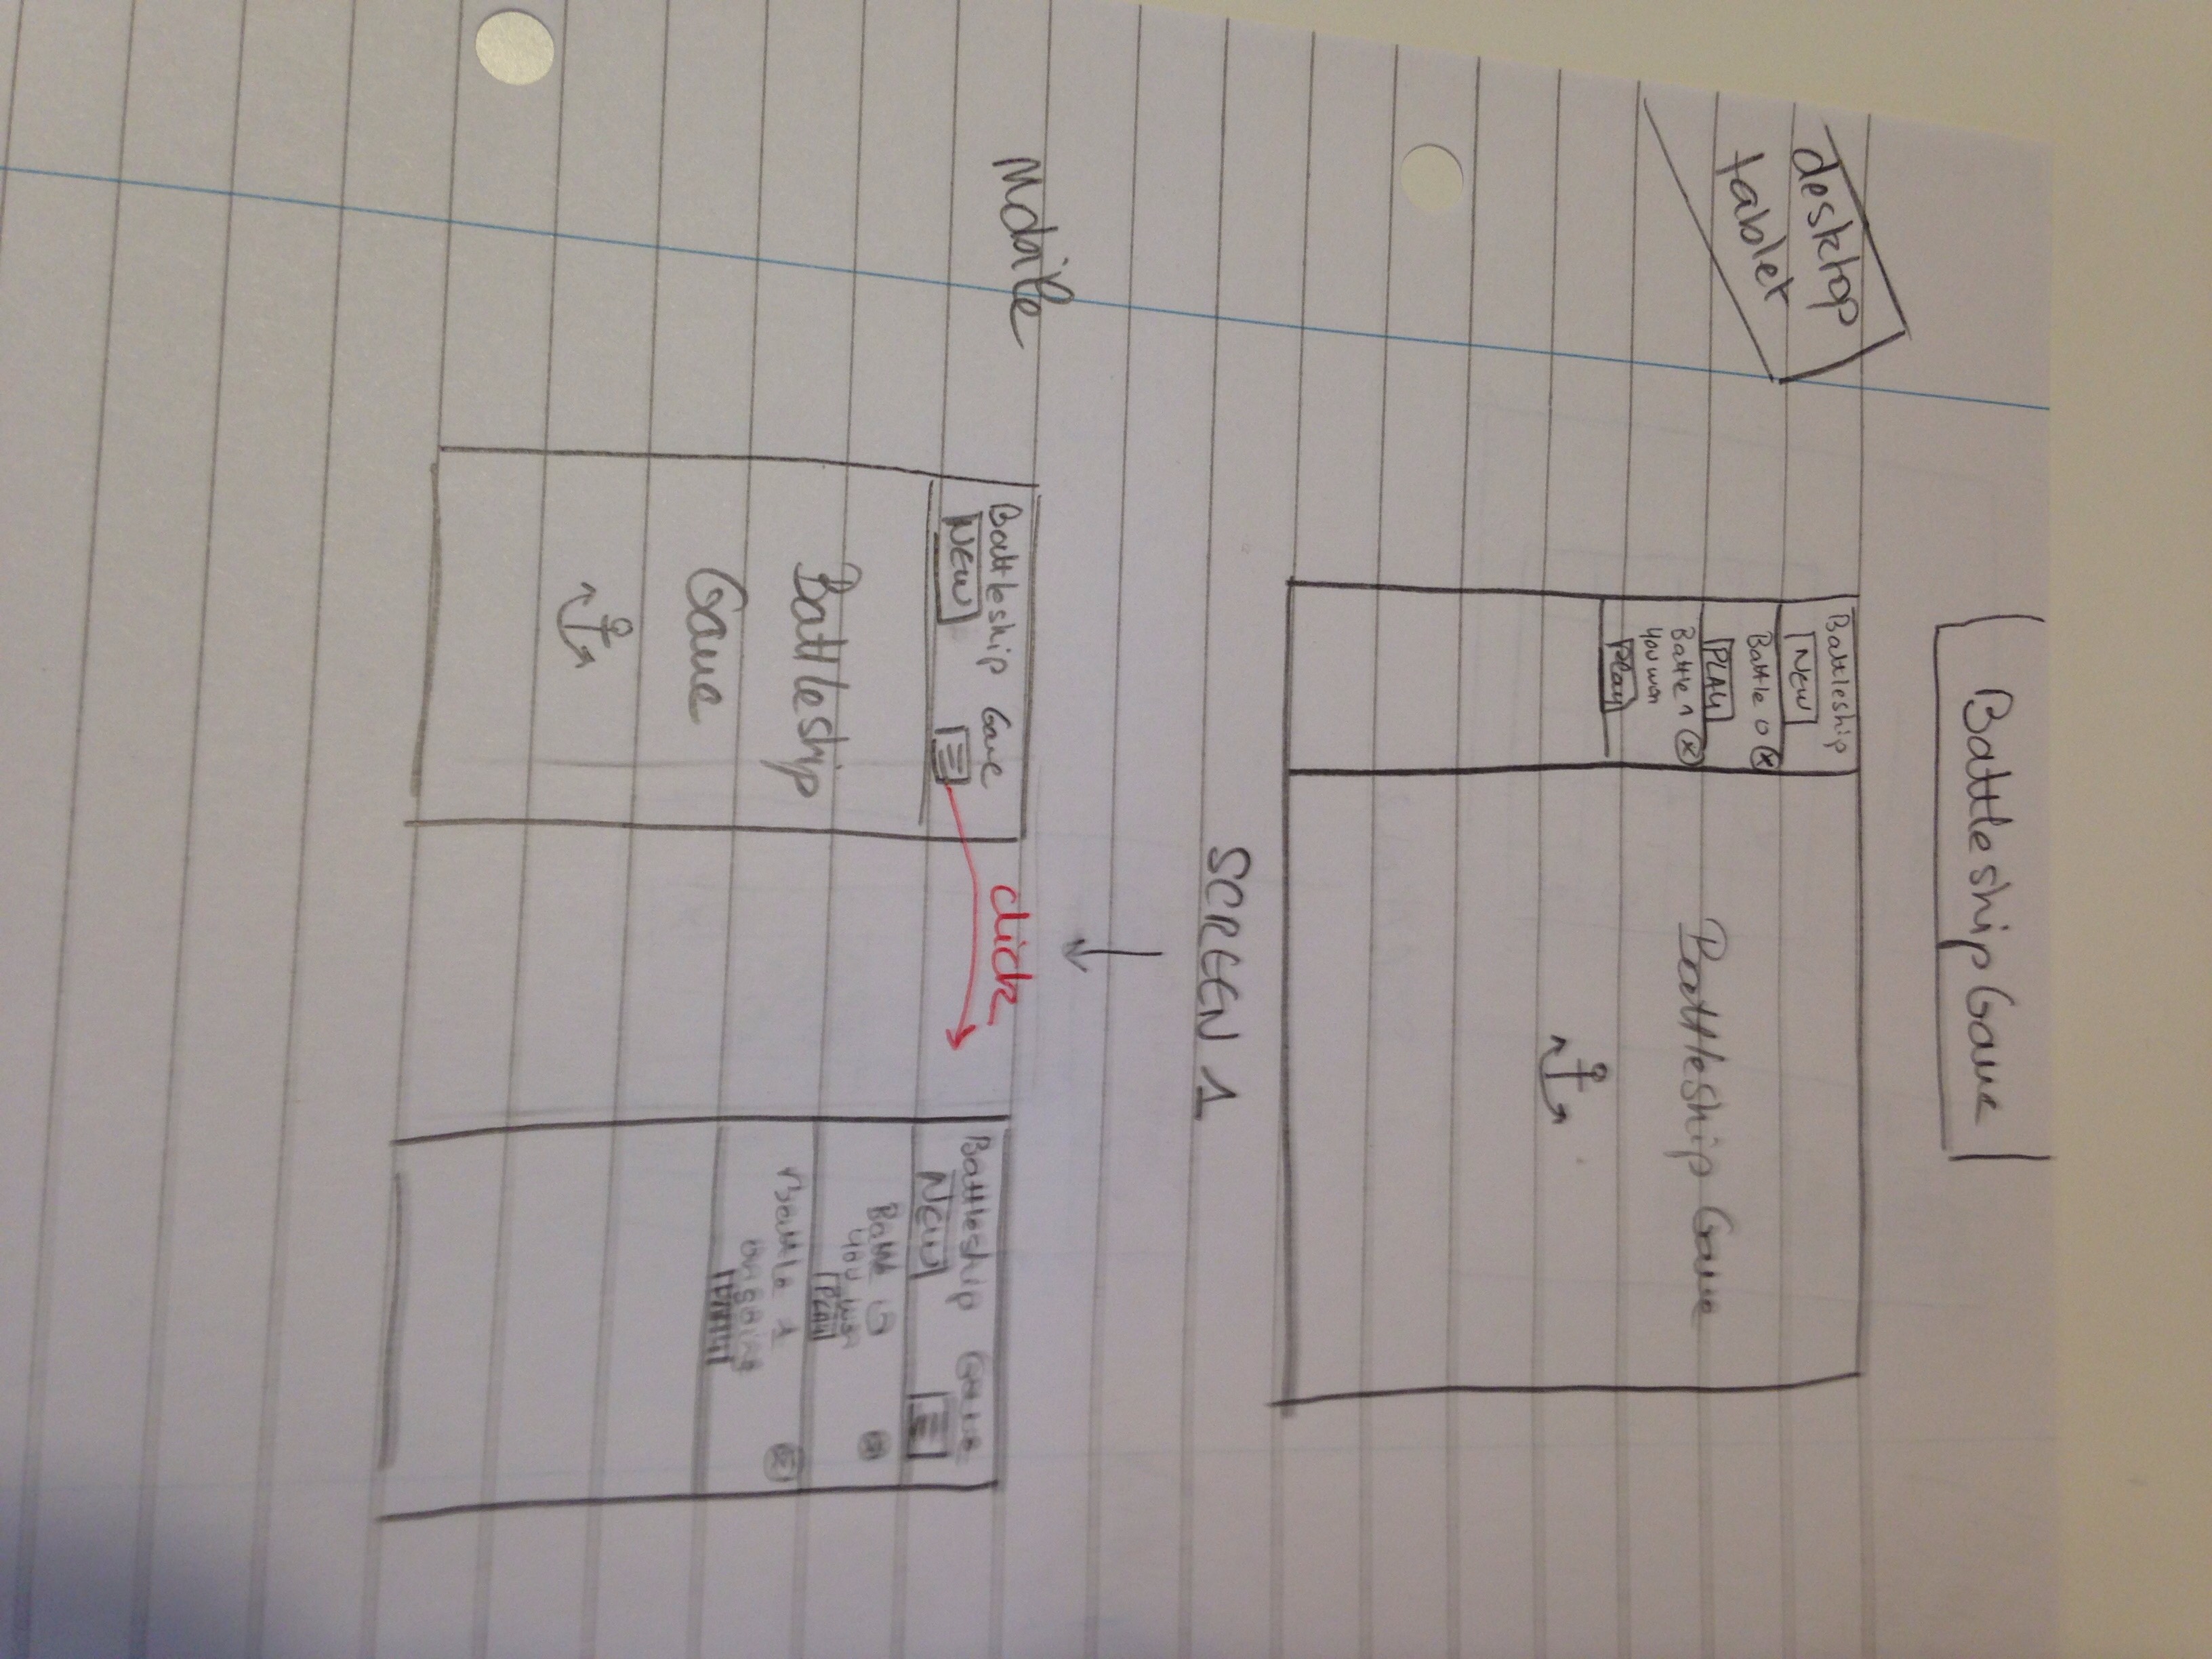 Battleship Game
desktop
tablet
Battleship
NEW
Battle 0 x
PLAY
Battle 1 x
you won
Play
Battleship Game
SCREEN 1
Mobile
Battleship Game
NEW
Battleship
Game
click
Battleship Game
NEW
Battle 0
you won
PLAY
Battle 1
ongoing